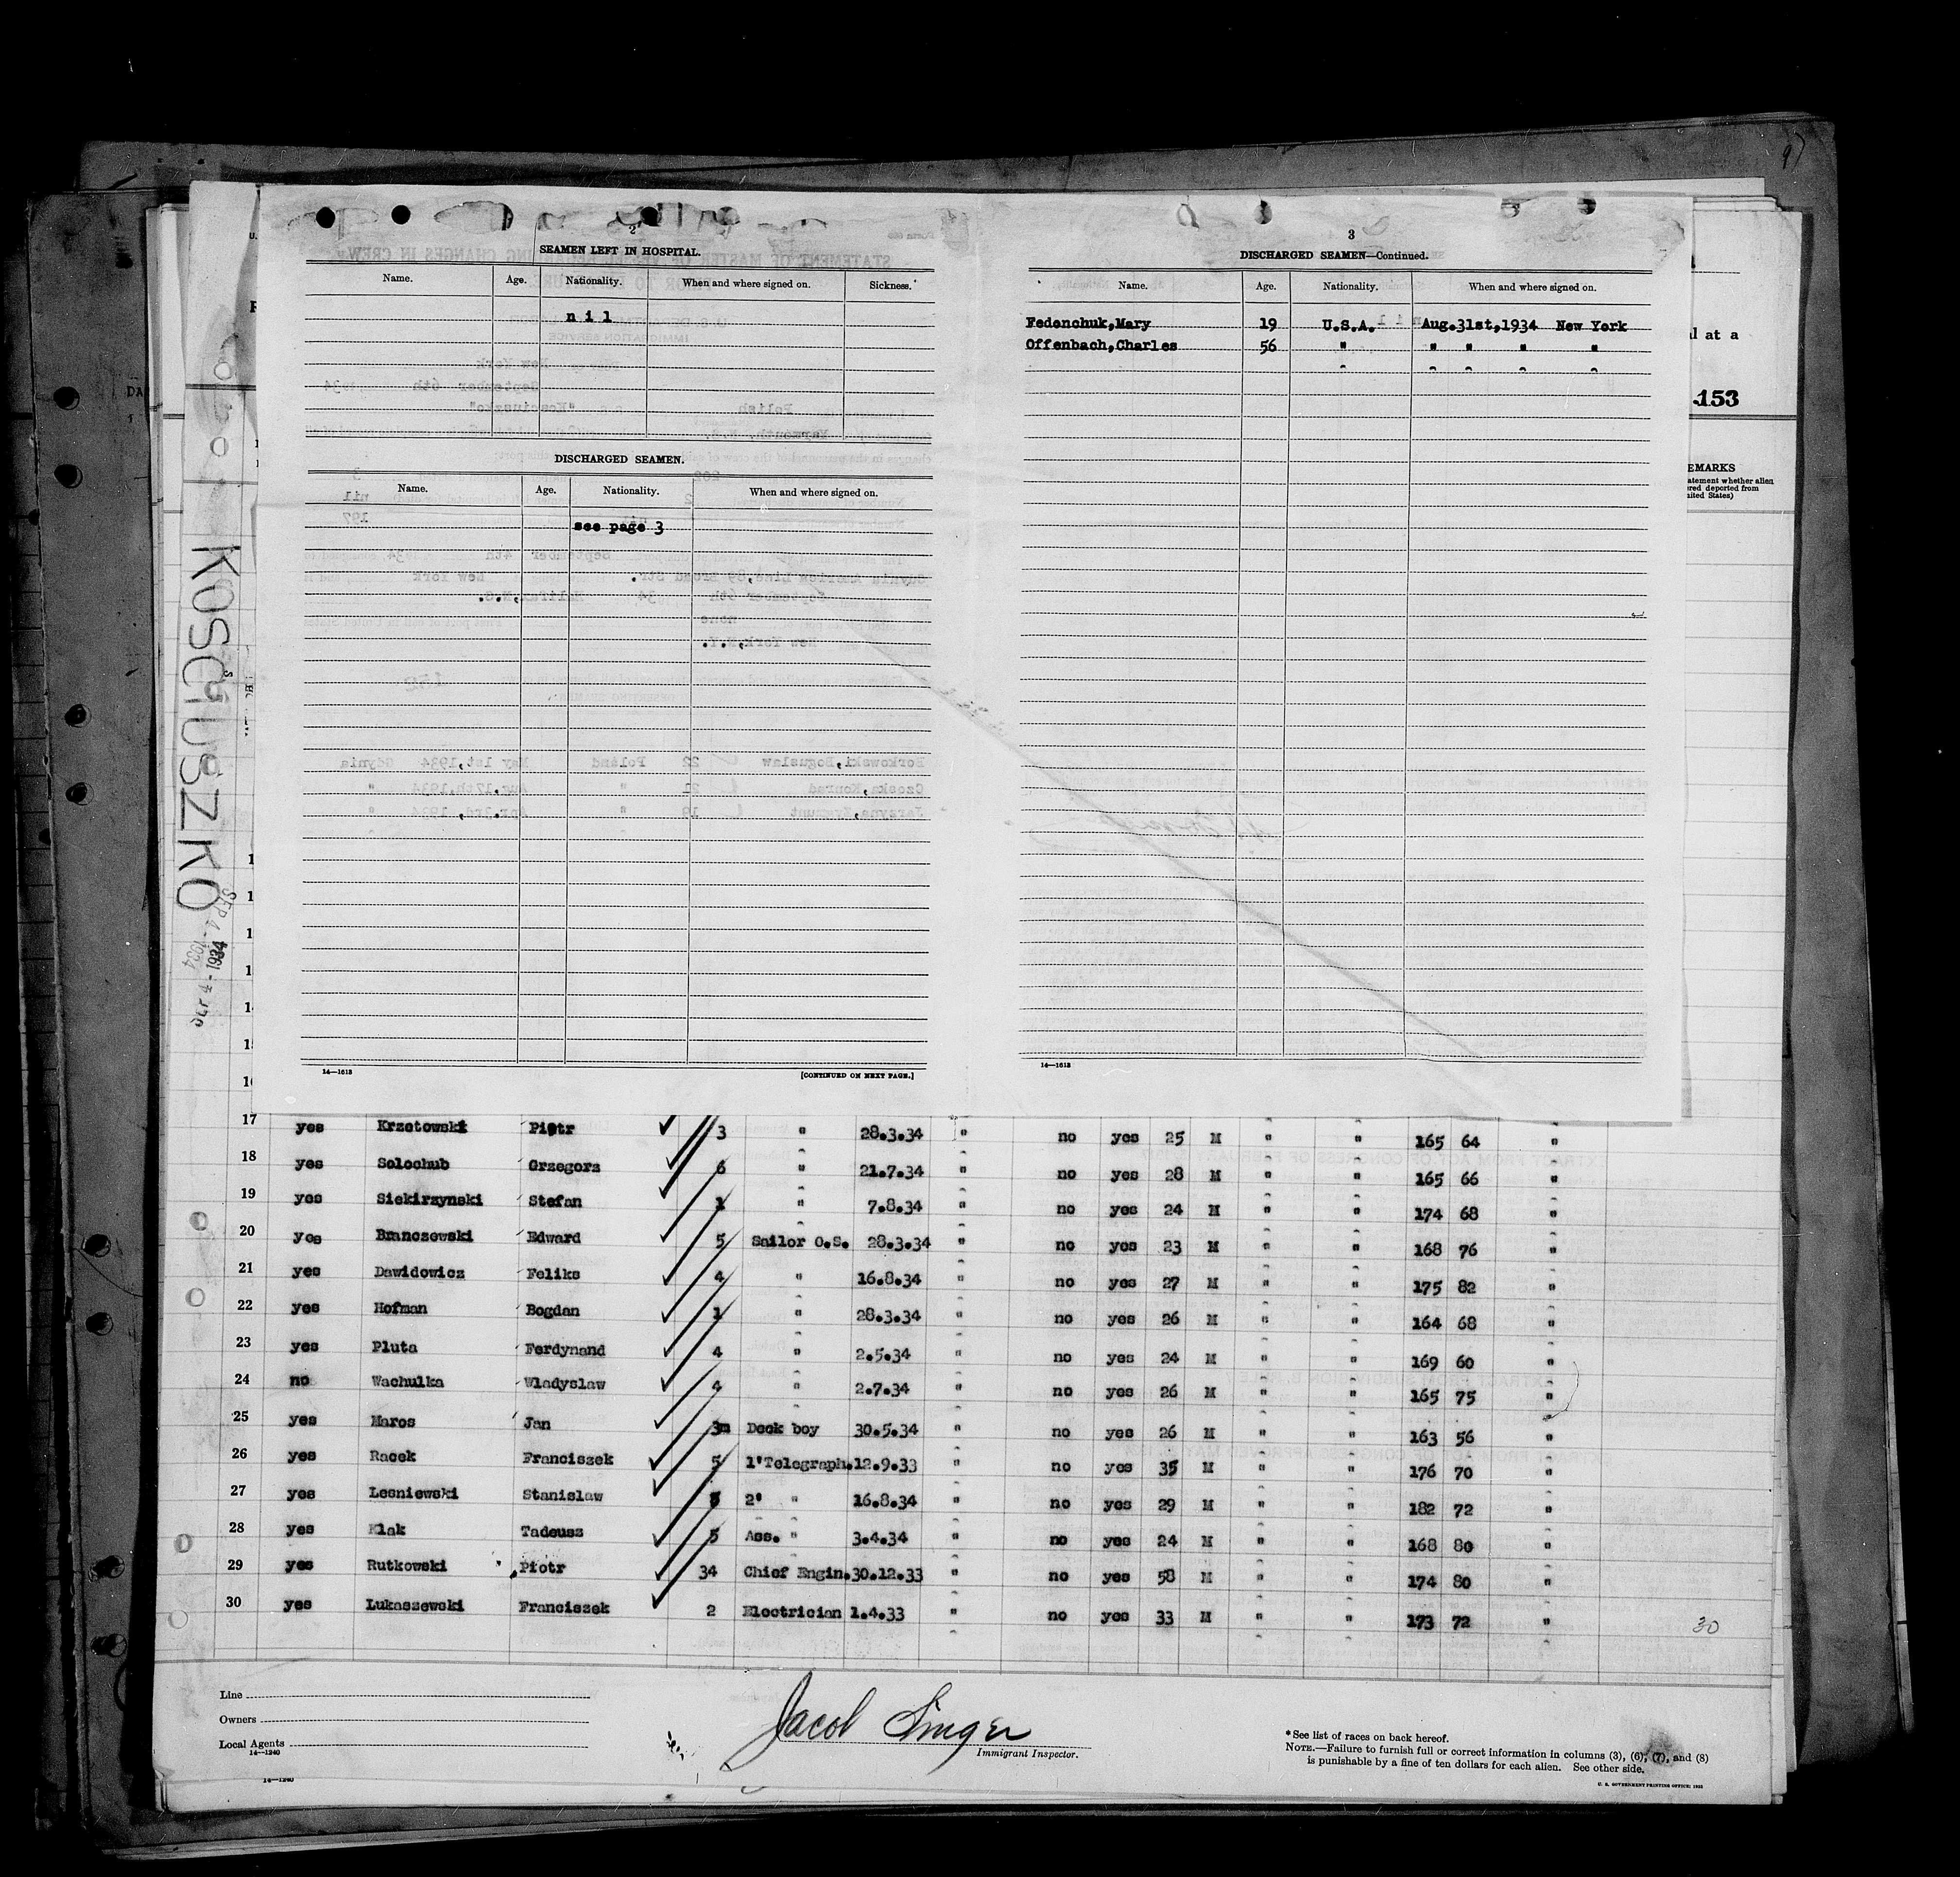 97
2
SEAMEN LEFT IN HOSPITAL.
Name. Age. Nationality. When and where signed on. Sickness.
nil
DISCHARGED SEAMEN.
Name. Age. Nationality. When and where signed on.
see page 3
14—1613
[CONTINUED ON NEXT PAGE.]
3
DISCHARGED SEAMEN—Continued.
Name. Age. Nationality. When and where signed on.
Fedenchuk,Mary 19 U.S.A. Aug.31st,1934 New York
Offenbach,Charles 56 " " " " "
14—1613
d at a
153
EMARKS
atement whether alien
ered deported from
nited States)
KOSCIUSZKO
SEP 4 - 1934
17 yes Krzetowski Piotr 3 " 28.3.34 " no yes 25 M " " 165 64 "
18 yes Solochub Grzegorz 6 " 21.7.34 " no yes 28 M " " 165 66 "
19 yes Siekirzynski Stefan 1 " 7.8.34 " no yes 24 M " " 174 68 "
20 yes Branczewski Edward 5 Sailor O.S. 28.3.34 " no yes 23 M " " 168 76 "
21 yes Dawidowicz Feliks 4 " 16.8.34 " no yes 27 M " " 175 82 "
22 yes Hofman Bogdan 1 " 28.3.34 " no yes 26 M " " 164 68 "
23 yes Pluta Ferdynand 4 " 2.5.34 " no yes 24 M " " 169 60 "
24 no Wachulka Wladyslaw 4 " 2.7.34 " no yes 26 M " " 165 75 "
25 yes Maros Jan 3m Deck boy 30.5.34 " no yes 26 M " " 163 56 "
26 yes Racek Franciszek 5 1'Telegraph. 12.9.33 " no yes 35 M " " 176 70 "
27 yes Lesniewski Stanislaw 2' " 16.8.34 " no yes 29 M " " 182 72 "
28 yes Klak Tadeusz 5 Ass. " 3.4.34 " no yes 24 M " " 168 80 "
29 yes Rutkowski Piotr 34 Chief Engin. 30.12.33 " no yes 58 M " " 174 80 "
30 yes Lukaszewski Franciszek 2 Electrician 1.4.33 " no yes 33 M " " 173 72 "
30
Line
Owners
Local Agents
14—1240
14—1240
Jacob Singer
Immigrant Inspector.
*See list of races on back hereof.
NOTE.—Failure to furnish full or correct information in columns (3), (6), (7), and (8)
is punishable by a fine of ten dollars for each alien. See other side.
U. S. GOVERNMENT PRINTING OFFICE: 1933